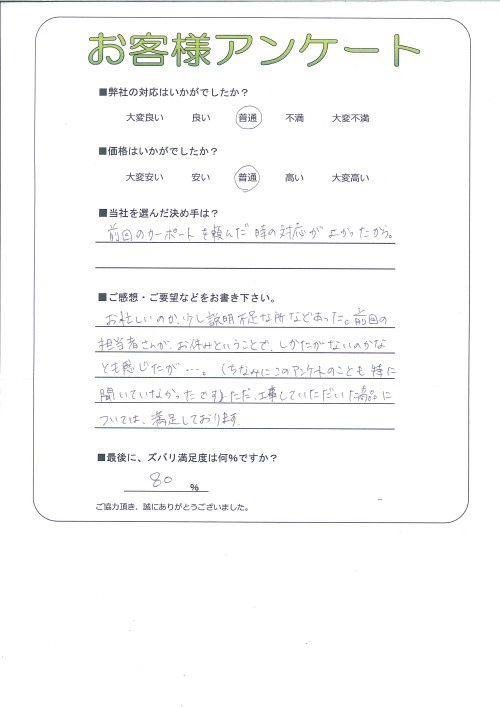 お客様アンケート
■弊社の対応はいかがでしたか？
大変良い 良い 普通 不満 大変不満
■価格はいかがでしたか？
大変安い 安い 普通 高い 大変高い
■当社を選んだ決め手は？
前回のカーポートを頼んだ時の対応がよかったから。
■ご感想・ご要望などをお書き下さい。
お忙しいのか、少し説明不足な所などあった。前回の
担当者さんが、お休みということで、しかたがないのかな
とも感じたが…。（ちなみにこのアンケートのことも特に
聞いていなかったです）ただ、工事していただいた商品に
ついては、満足しております。
■最後に、ズバリ満足度は何％ですか？
80 ％
ご協力頂き、誠にありがとうございました。